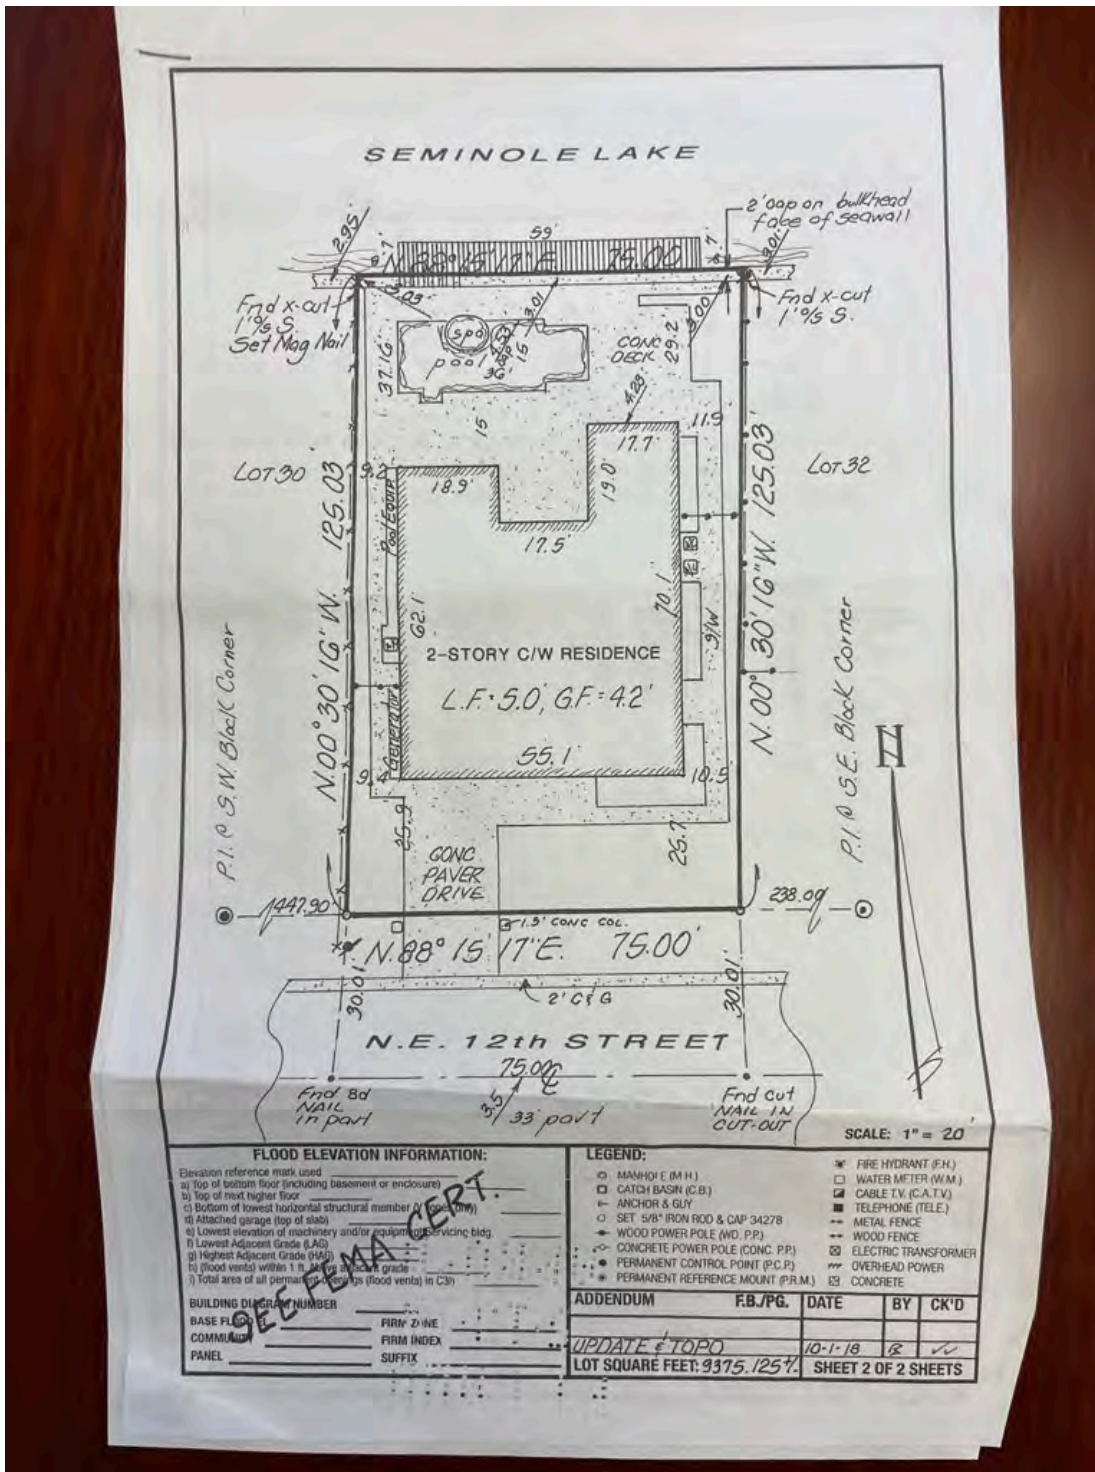 SEMINOLE LAKE
2' cap on bulkhead
face of seawall
59'
2.95'
8.7'
8.7'
3.01'
N. 88° 15' 17" E. 75.00
Fnd x-cut
1' O/S S.
Set Mag Nail
Fnd x-cut
1' O/S S.
3.03
3.01
3.00
spa
pool
36'
15
37.16'
CONC
DECK
29.2'
4.29'
15
11.9
17.7'
LOT 30
LOT 32
9.2
18.9'
19.0'
17.5'
Pool Equip.
N.00° 30' 16" W. 125.03'
N. 00° 30' 16" W. 125.03'
62.1'
70.1'
S/W
2-STORY C/W RESIDENCE
L.F.= 5.0', G.F.= 4.2'
Generator
55.1'
10.5
25.9
25.7
P.I. @ S.W. Block Corner
P.I. @ S.E. Block Corner
CONC
PAVER
DRIVE
447.90'
238.00'
1.5' CONC COL.
N.88° 15' 17" E. 75.00'
30.01'
30.01'
2' C & G
N.E. 12th STREET
75.00'
Fnd 8d
NAIL
in pavt
3.5
33' pavt
Fnd Cut
NAIL IN
CUT-OUT
SCALE: 1" = 20'
FLOOD ELEVATION INFORMATION:
Elevation reference mark used
a) Top of bottom floor (including basement or enclosure)
b) Top of next higher floor
c) Bottom of lowest horizontal structural member (V zones only)
d) Attached garage (top of slab)
e) Lowest elevation of machinery and/or equipment servicing bldg.
f) Lowest Adjacent Grade (LAG)
g) Highest Adjacent Grade (HAG)
h) (flood vents) within 1 ft. above adjacent grade
i) Total area of all permanent openings (flood vents) in C3h
SEE FEMA CERT.
BUILDING DIAGRAM NUMBER
BASE FLOOD EL
FIRM ZONE
COMMUNITY
FIRM INDEX
PANEL
SUFFIX
LEGEND:
MANHOLE (M.H.)
CATCH BASIN (C.B.)
ANCHOR & GUY
SET 5/8" IRON ROD & CAP 34278
WOOD POWER POLE (WD. P.P.)
CONCRETE POWER POLE (CONC. P.P.)
PERMANENT CONTROL POINT (P.C.P.)
PERMANENT REFERENCE MOUNT (P.R.M.)
FIRE HYDRANT (F.H.)
WATER METER (W.M.)
CABLE T.V. (C.A.T.V.)
TELEPHONE (TELE.)
METAL FENCE
WOOD FENCE
ELECTRIC TRANSFORMER
OVERHEAD POWER
CONCRETE
ADDENDUM F.B./PG. DATE BY CK'D
UPDATE & TOPO 10-1-18
LOT SQUARE FEET: 9375.125 +/- SHEET 2 OF 2 SHEETS